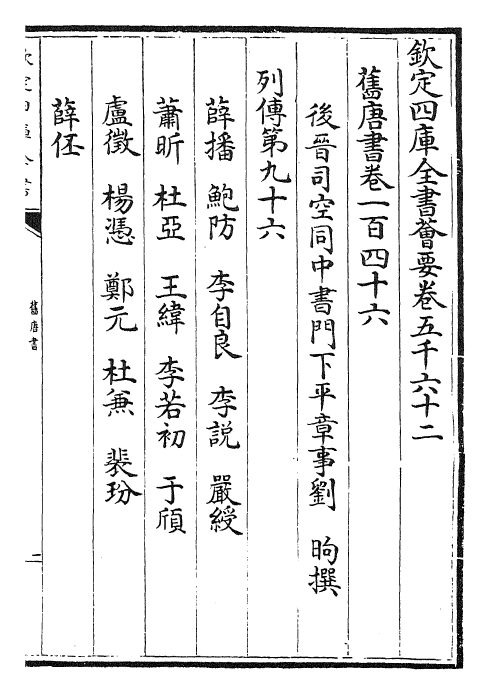 欽定四庫全書薈要卷五千六十二
舊唐書卷一百四十六
後晉司空同中書門下平章事劉 昫撰
列傳第九十六
薛播 鮑防 李自良 李説 嚴綬
蕭昕 杜亞 王緯 李若初 于頎
盧徵 楊憑 鄭元 杜兼 裴玢
薛伾
舊唐書